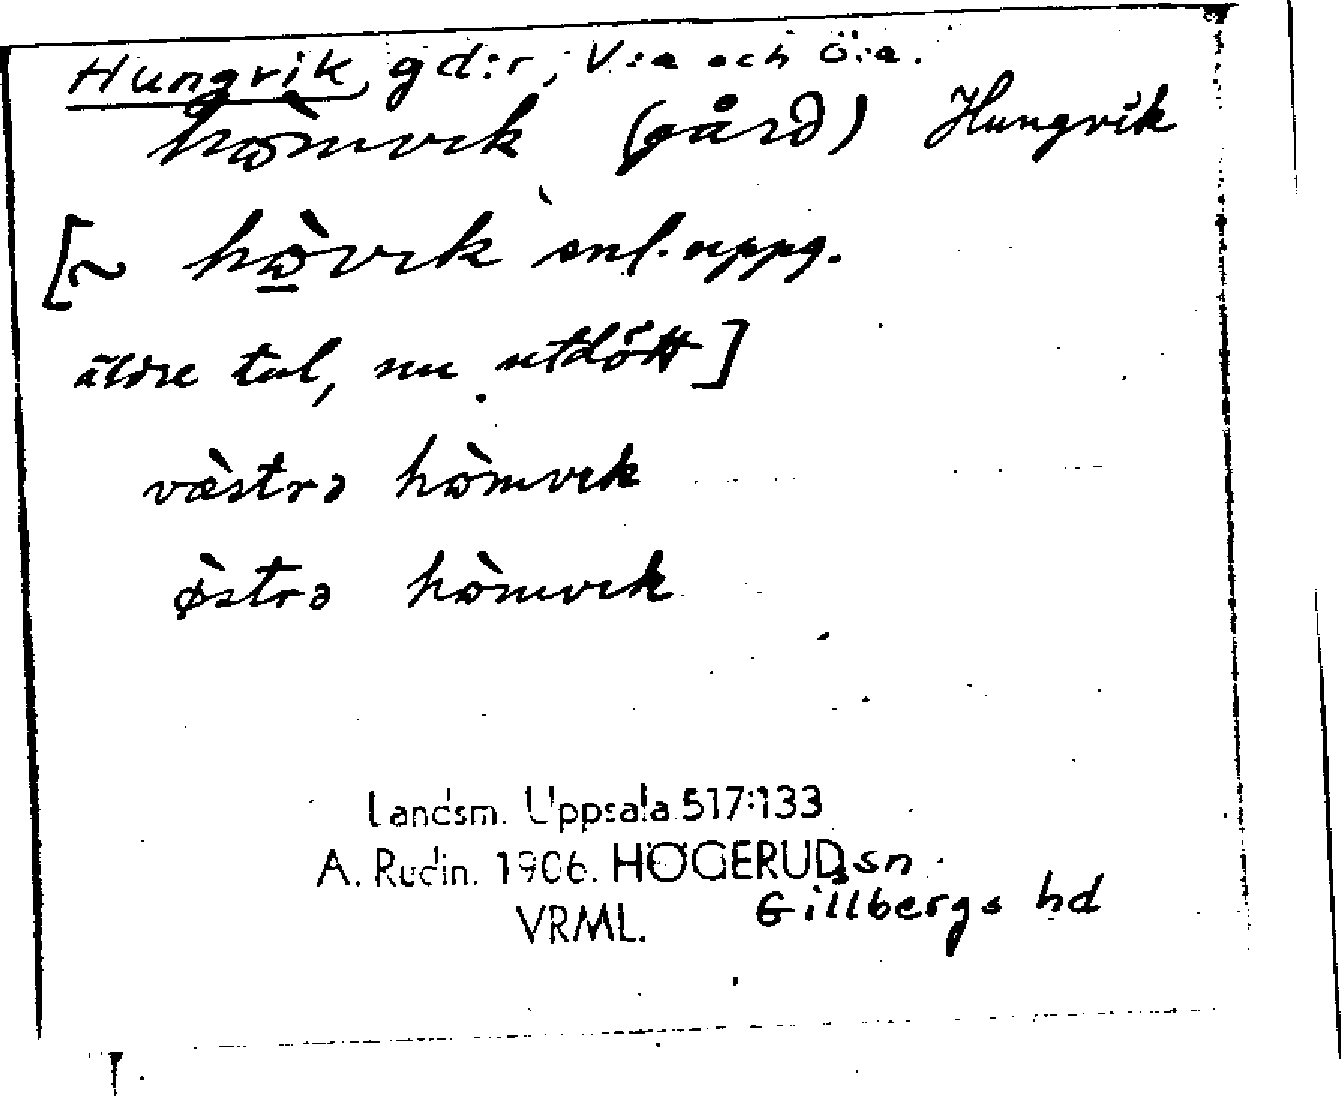 Hungvik, gd:r, V:a och Ö:a.
hɷ̀mvɩk (gård) Hungvik
[~ hɷ̲̀vɩk enl. uppg.
äldre tal, nu utdött]
væ̀strə hɷ̀mvɩk
ø̀strə hɷ̀mvɩk
Landsm. Uppsala 517:133
A. Rudin. 1906. HÖGERUD sn
VRML. Gillbergs hd